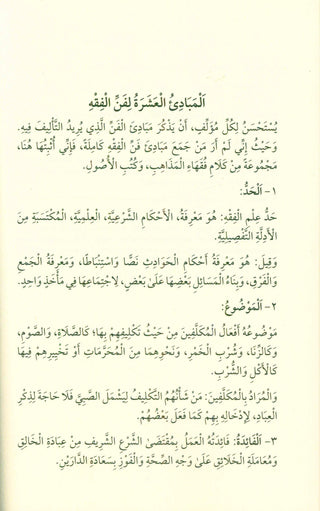 اَلْمَبَادِئُ الْعَشَرَةُ لِفَنِّ الْفِقْهِ
يُسْتَحْسَنُ لِكُلِّ مُؤَلِّفٍ، أَنْ يَذْكُرَ مَبَادِئَ الْفَنِّ الَّذِي يُرِيدُ التَّأْلِيفَ فِيهِ.
وَحَيْثُ إِنِّي لَمْ أَرَ مَنْ جَمَعَ مَبَادِئَ فَنِّ الْفِقْهِ كَامِلَةً، فَإِنِّي أُثْبِتُهَا هُنَا،
مَجْمُوعَةً مِنْ كَلَامِ فُقَهَاءِ الْمَذَاهِبِ، وَكُتُبِ الْأُصُولِ.
١- اَلْحَدُّ:
حَدُّ عِلْمِ الْفِقْهِ: هُوَ مَعْرِفَةُ، الْأَحْكَامِ الشَّرْعِيَّةِ، الْعِلْمِيَّةِ، الْمُكْتَسَبَةِ مِنَ
الْأَدِلَّةِ التَّفْصِيلِيَّةِ.
وَقِيلَ: هُوَ مَعْرِفَةُ أَحْكَامِ الْحَوَادِثِ نَصًّا وَاسْتِنْبَاطًا، وَمَعْرِفَةُ الْجَمْعِ
وَالْفَرْقِ، وَبِنَاءُ الْمَسَائِلِ بَعْضِهَا عَلَىٰ بَعْضٍ، لِاجْتِمَاعِهَا فِي مَأْخَذٍ وَاحِدٍ.
٢- اَلْمَوْضُوعُ:
مَوْضُوعُهُ أَفْعَالُ الْمُكَلَّفِينَ مِنْ حَيْثُ تَكْلِيفِهِمْ بِهَا؛ كَالصَّلَاةِ، وَالصَّوْمِ،
وَكَالزِّنَا، وَشُرْبِ الْخَمْرِ، وَنَحْوِهِمَا مِنَ الْمُحَرَّمَاتِ أَوْ تَخْيِيرِهِمْ فِيهَا
كَالْأَكْلِ وَالشُّرْبِ.
وَالْمُرَادُ بِالْمُكَلَّفِينَ: مَنْ شَأْنُهُمُ التَّكْلِيفُ لِيَشْمَلَ الصَّبِيَّ فَلَا حَاجَةَ لِذِكْرِ
الْعِبَادِ، لِإِدْخَالِهِ بِهِمْ كَمَا فَعَلَ بَعْضُهُمْ.
٣- اَلْفَائِدَةُ: فَائِدَتُهُ الْعَمَلُ بِمُقْتَضَى الشَّرْعِ الشَّرِيفِ مِنْ عِبَادَةِ الْخَالِقِ
وَمُعَامَلَةِ الْخَلَائِقِ عَلَىٰ وَجْهِ الصِّحَّةِ وَالْفَوْزِ بِسَعَادَةِ الدَّارَيْنِ.